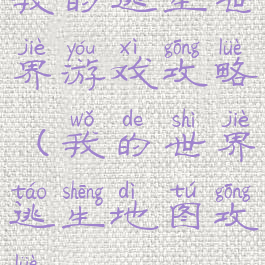 我的逃生世
jiè yóu xì gōng lüè
界游戏攻略
wǒ de shì jiè
(我的世界
táo shēng dì tú gōng
逃生地图攻
lüè